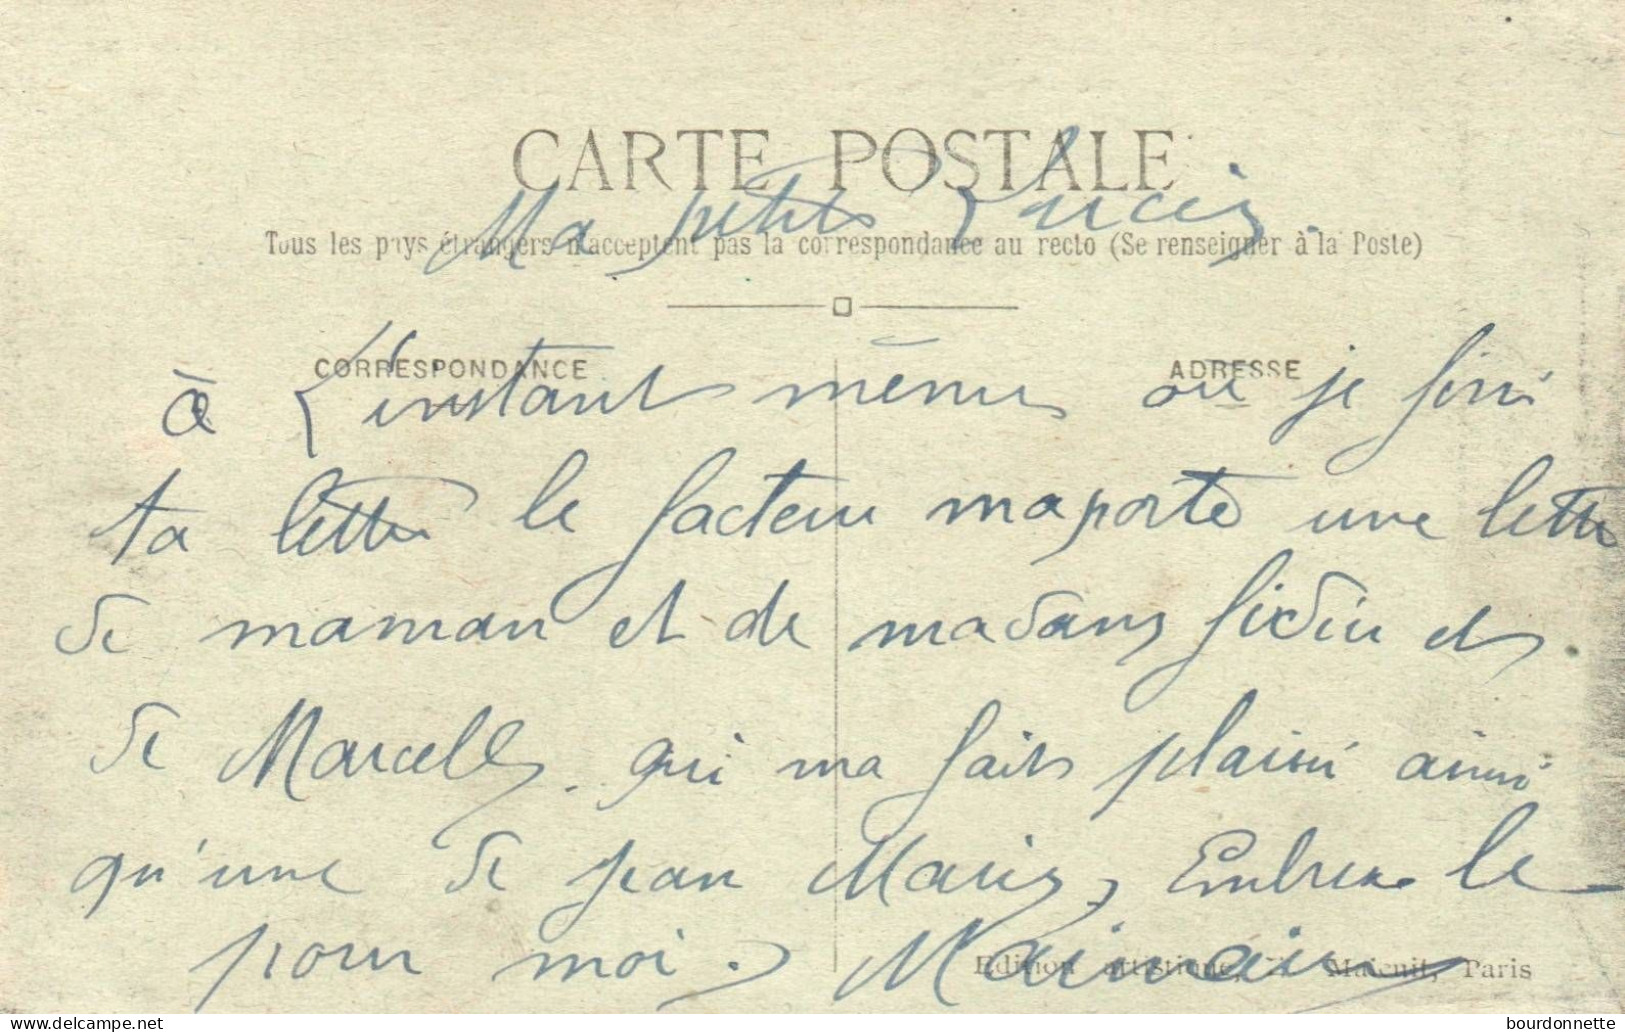 CARTE POSTALE
Ma petite Lucie.
Tous les pays étrangers n'acceptent pas la correspondance au recto (Se renseigner à la Poste)
CORRESPONDANCE
ADRESSE
à L'instant même où je fini
ta lettre le facteur maporte une lettre
de maman et de madame et
de Marcelle. qui ma fait plaisir ainsi
qu'une de jean Marie, Embrasse le
pour moi.
Edition artistique, Paris
bourdonnette